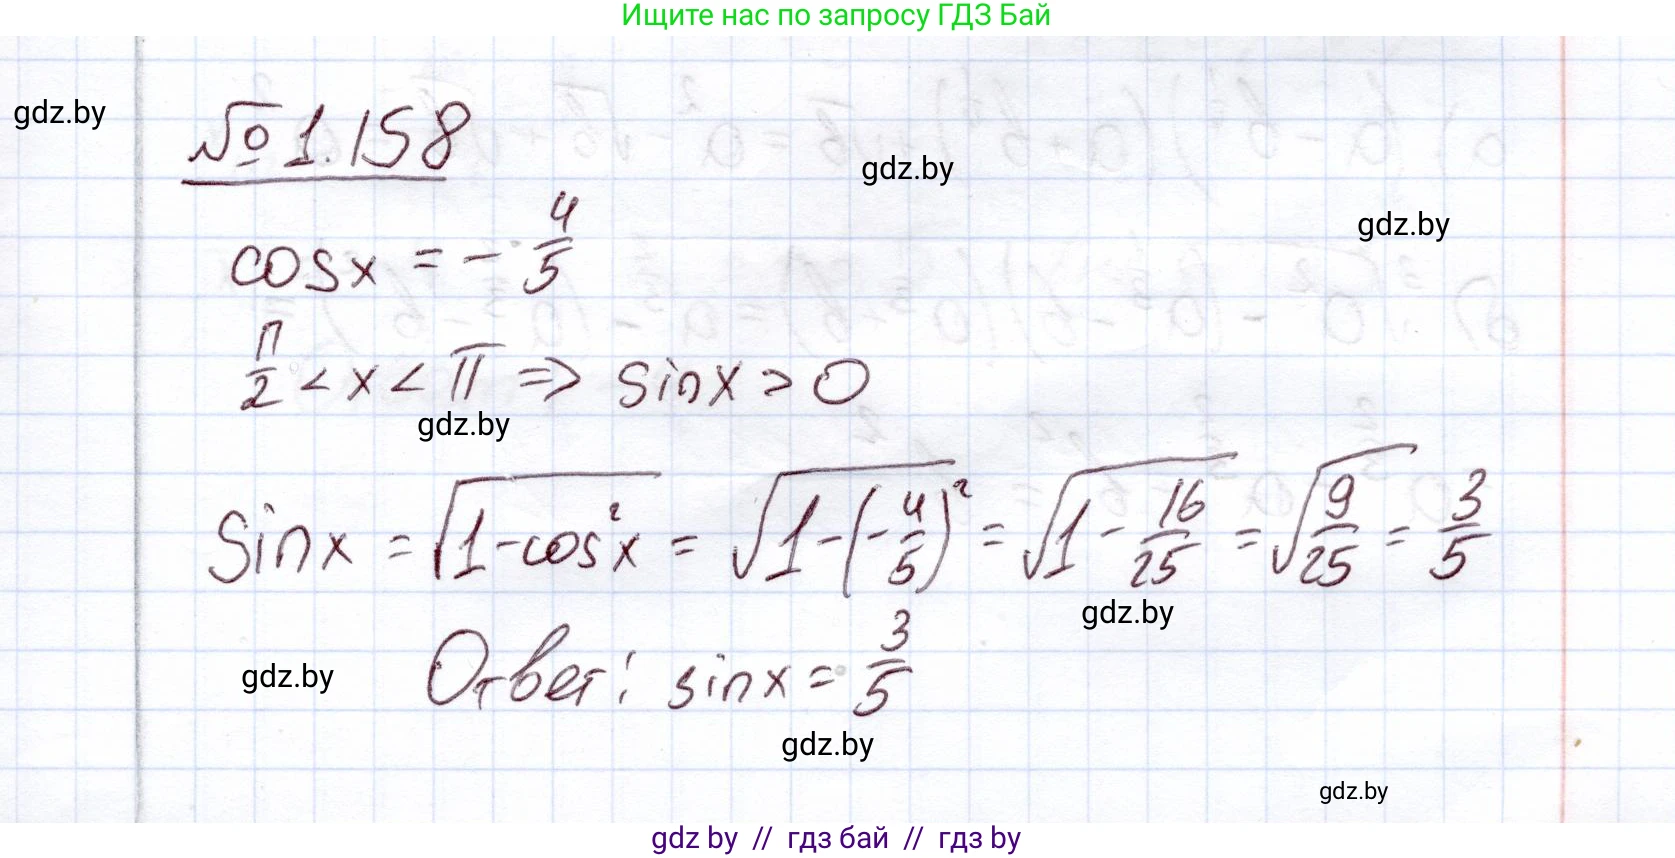 Ищите нас по запросу ГДЗ Бай
gdz.by
№ 1.158
gdz.by
gdz.by
cosx = - 4/5
π/2 < x < π => sinx > 0
gdz.by
Sinx = √(1-cos²x) = √(1-(-4/5)²) = √(1-16/25) = √(9/25) = 3/5
gdz.by
Ответ: sinx = 3/5
gdz.by
gdz.by
gdz.by
gdz by // гдз бай // гдз by